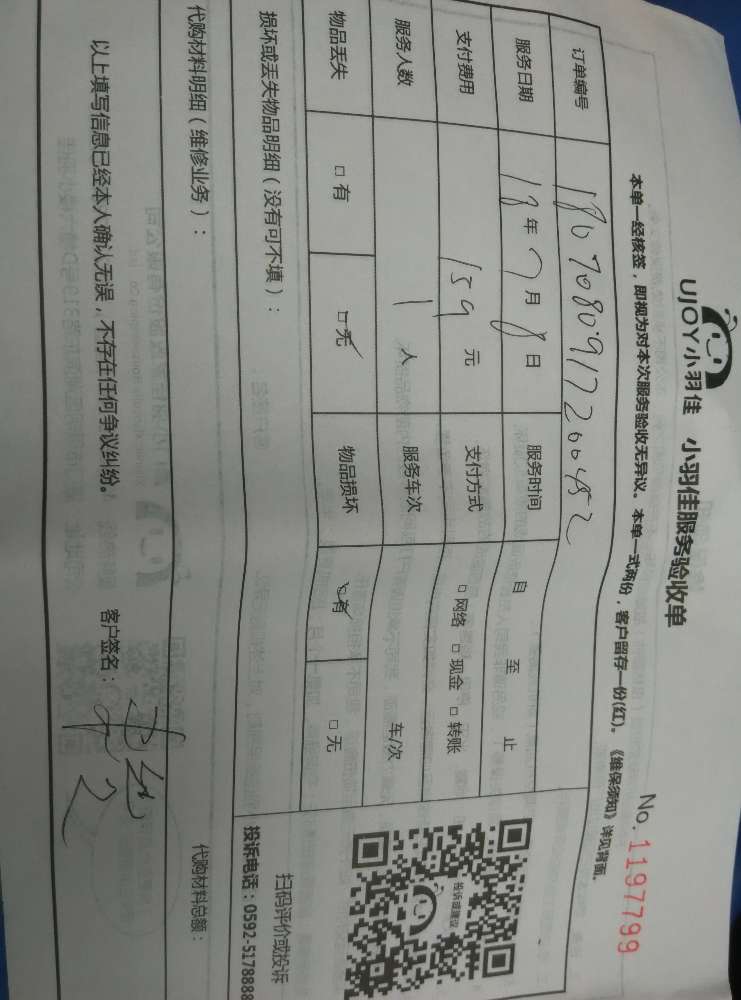 UJOY小羽佳 小羽佳服务验收单
No. 1197799
本单一经核签，即视为对本次服务验收无异议。本单一式两份，客户留存一份(红)。《维保须知》详见背面。
订单编号 180708091720045 2
服务日期 18年7月8日 服务时间 自 至 止
支付费用 159元 支付方式 □网络 □现金 □转账
服务人数 1人 服务车次 车/次
物品丢失 □有 □无 物品损坏 □有 □无
投诉或建议
扫码评价或投诉
投诉电话：0592-5178888
损坏或丢失物品明细（没有可不填）：
代购材料明细（维修业务）：
代购材料总额：
以上填写信息已经本人确认无误，不存在任何争议纠纷。 客户签名：